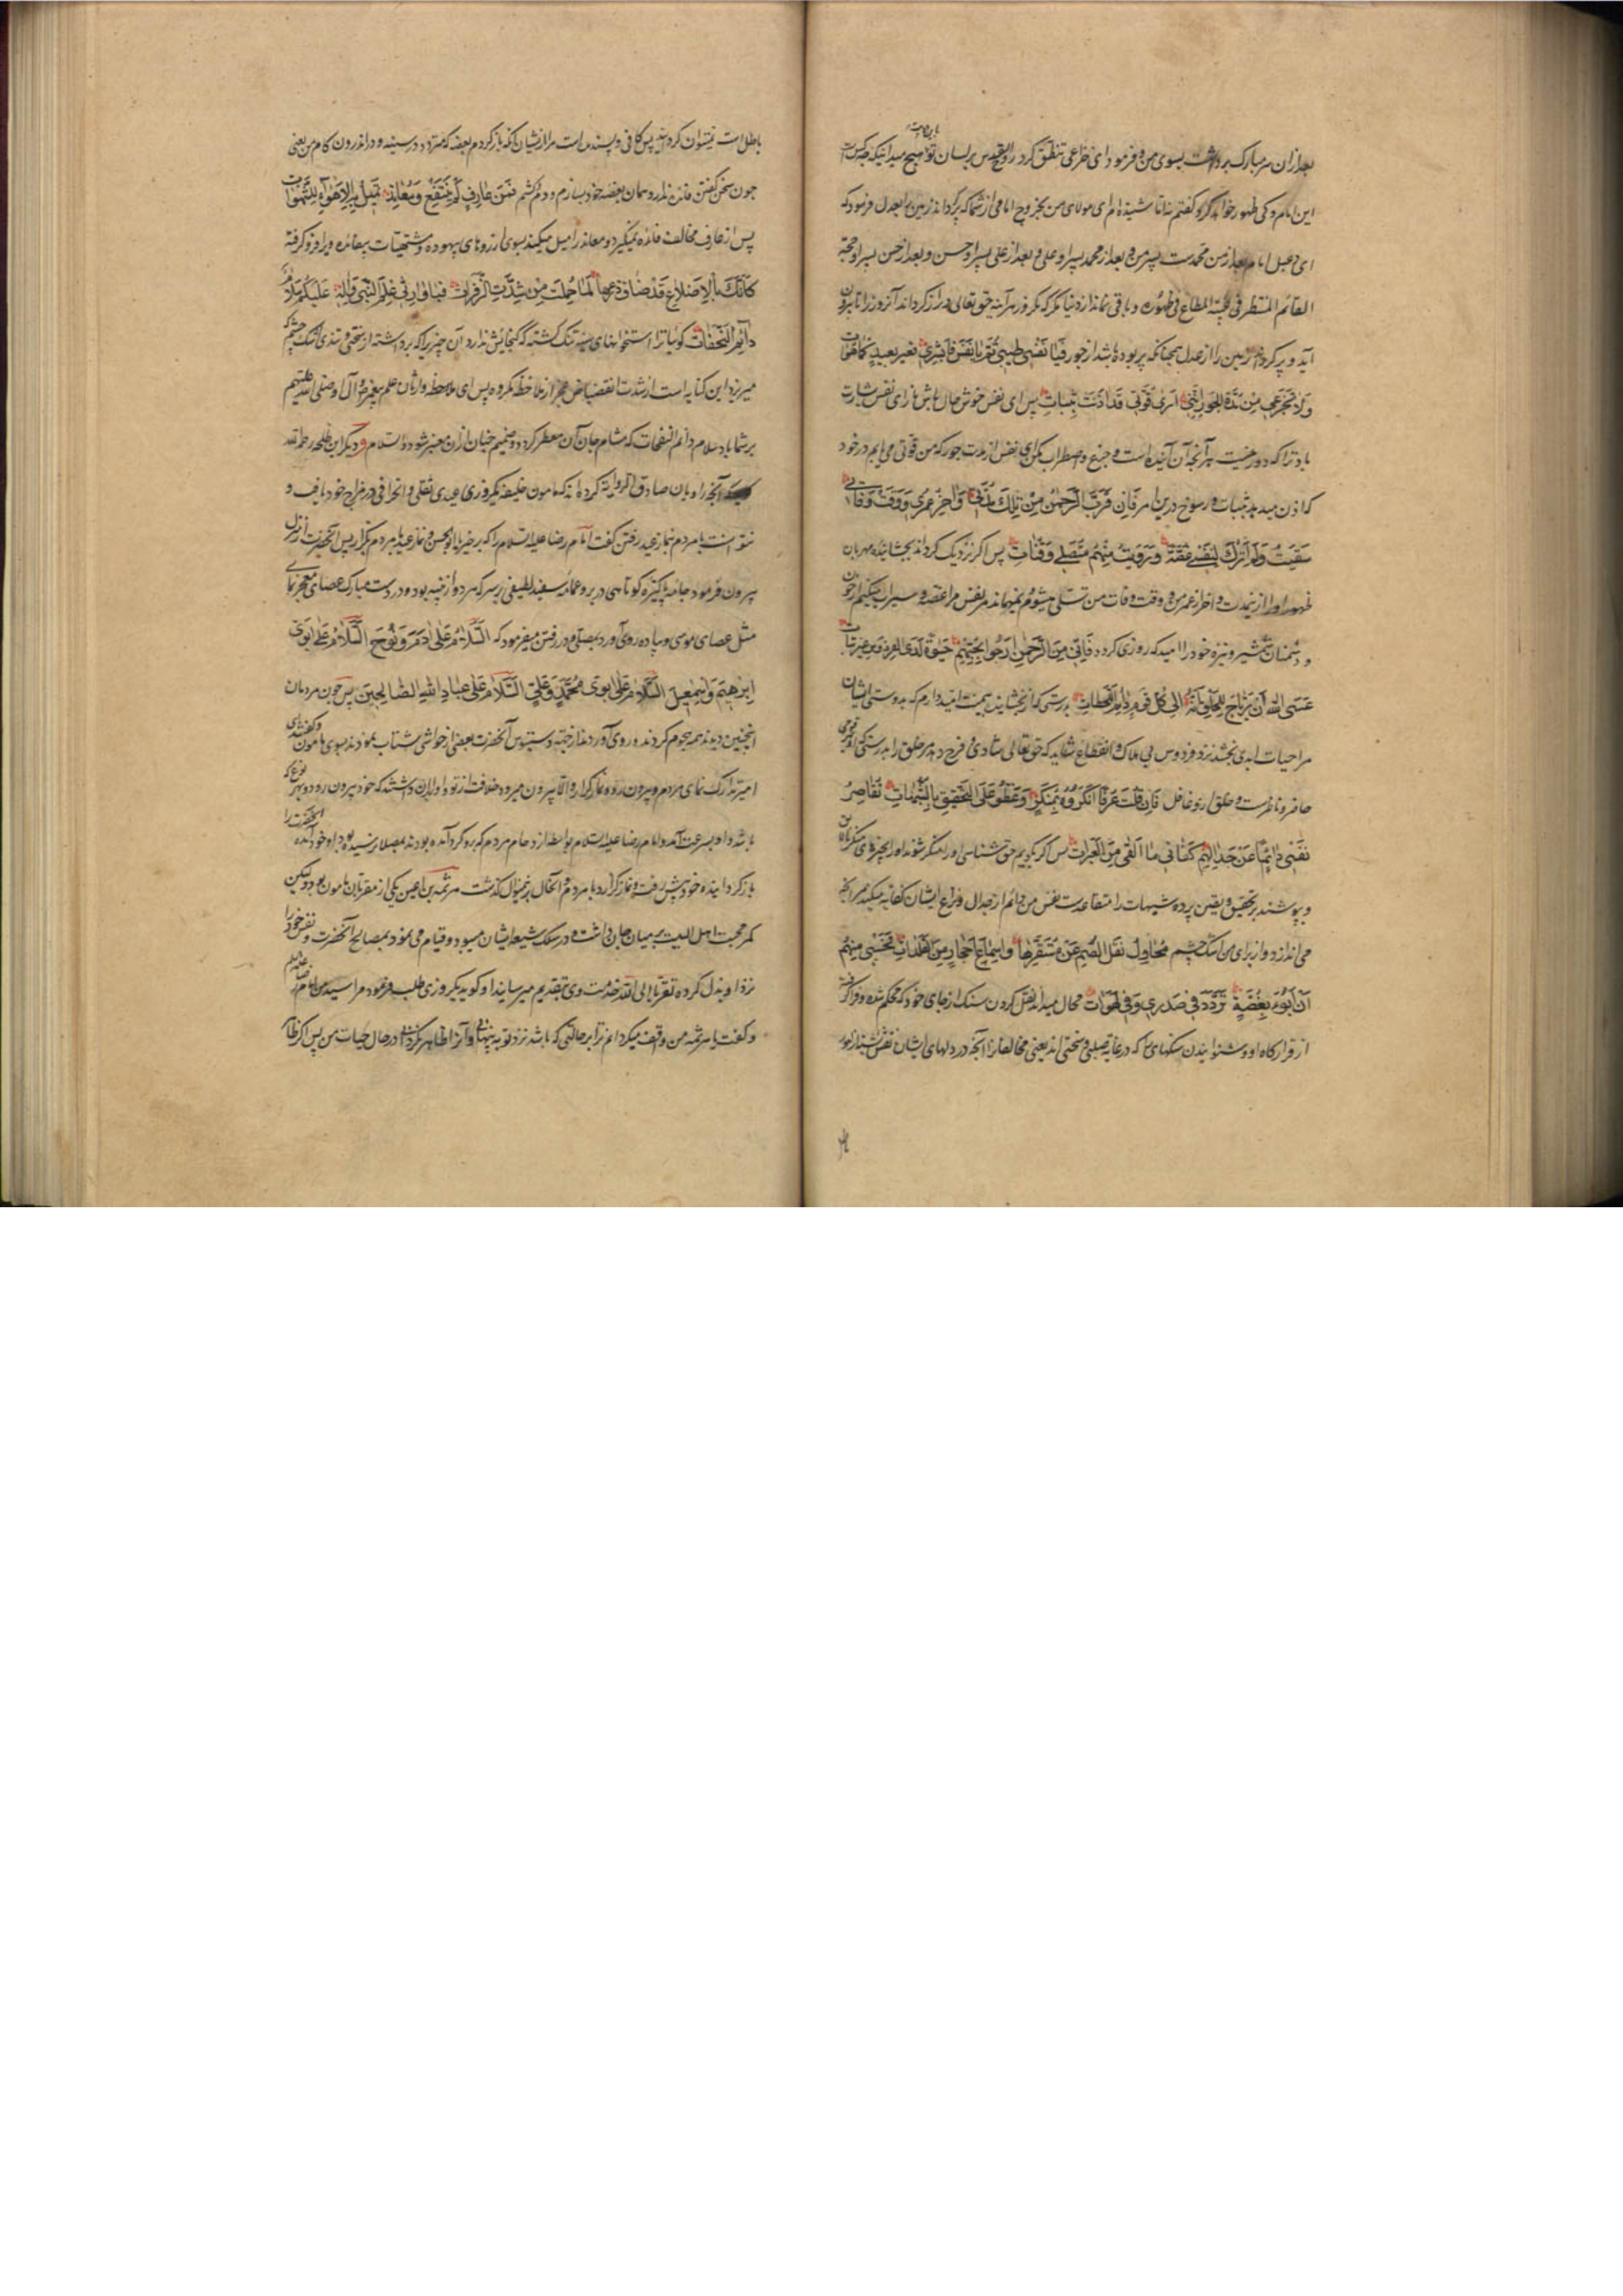 بعد ازان سر مبارک برداشت بسوی من و فرمود ای خزاعی تنطق کرد روح القدس بر لسان تو هیچ میدانی که چه کس است
این امام و کی ظهور خواهد کرد گفتم نه اما شنیده ام ای مولای من بخروج امامی از شما که پر کرداند زمین را بعدل فرمود که
ای دعبل امام بعد از من محمدست پسر من و بعد از محمد پسر او علی و بعد از علی پسر او حسن و بعد از حسن پسر او حجة
القائم المنتظر فی غیبته المطاع فی ظهوره و باقی نماند از دنیا مکر که یکروز هر آینه حق تعالی دراز کرداند آنروز را تا بیرون
آید و پر کرداند زمین را از عدل همچنانکه پر بوده باشد از جور فیا نفس طیبی ثم یا نفس فابشری فغیر بعید کلما هوات
ولا تجزعی من مدة الجور اننی اری قوتی قد اذنت بثبات پس ای نفس خوش حال باش باز ای نفس بشارت
باد ترا که دور نیست هر آنچه آن آینده است و جزع و اضطراب مکن ای نفس از مدت جور که من قوتی می یابم در خود
که اذن میدهد بثبات و رسوخ درین امر فان قرب الرحمن من تلک مدتی و اخر عمری و وقت وفاتی
شفیت ولم اترک لنفسی غصة و رویت منهم منصلی و قناتی پس اکر نزدیک کرداند بخشاینده مهربان
ظهور او را از نیمدت و اخر از عمر من و وقت وفات من تسلی میشوم و نمیماند مر نفس مرا غصه و سیراب میکنیم از خون
دشمنان شمشیر و نیزه خود را امید که روزی کردد فانی من الرحمن ارجو بحبهم حیوة لدی الفردوس غیر بتات
عسی الله ان یرتاح للخلق انه الی کل قوم دائم اللحظات بدرستی که از بخشاینده بهمت امیدوارم که بدوستی ایشان
مرا حیات ابدی بخشد نزد فردوس بی هلاک و انقطاع شاید که حق تعالی شادی و فرح دهد مر خلق را بدرستی که او بهر قومی
حاضر و ناظرست و خلق ازو غافل فان قلت عرفا انکروه بمنکر و غطوا علی التحقیق بالشبهات تقاصر
نفسی دائما عن جدالهم کفانی ما القی من العبرات پس اکر بکویم حق شناسی او را منکر شوند او را بچیزهای منکر
و بپوشند بر تحقیق و یقین پرده شبهات را متقاعدست نفس من دائم از جدال و نزاع ایشان کفایه میکند مرا آنچه
می اندازد و از برای من اشک چشم محاول نقل الصم عن مستقرها و اسماع احجار من الصلدات فحسبی منهم
ان ابوء بغصة تردد فی صدری و فی لهوات محال میداند نقل کردن سنک از جای خود که محکم شده و فرا کرفته
از قرارکاه او و شنوا یندن سنکهای که در غایة صلبی و سختی اند یعنی مخالفانرا آنچه در دلهای ایشان نقش بسته از
باطل است نمیتوان کردانید پس کافی و پسنده است مرا از شیان آنکه باز کردم بغصه که متردد در سینه و در اندرون کام من یعنی
چون سخن کفتن فائده ندارد همان بغصه خود بسازم و دم درکشم فمن عارف لم ینتفع و معاند تمیل به الاهواء للشهوات
پس از عارف مخالف فائده نمیکیرد و معاند را میل میکند بسوی ارزوهای بیهوده و مشتهیات بیفائده ویرا فرو کرفته
کانک بالاضلاع قد ضاق ذرعها لما حملت من شدت الزفرات فیا وارثی علم النبی و اله علیکم سلام
دائم النفحات کوئیا ترا استخوانهای سینه تنک کشته که کنجایش ندارد آن چیز را که برداشته از سختی و تندی اشک چشم که
میریزد این کنایه است از شدت انقضیاض پس ای وارثان علم پیغمبر و آل او صلی الله علیهم
بر شما باد سلام دائم النفحات که مشام جان آن معطر کردد و ضمیر جنان ازان معنبر شود والسلام و دیکر ابن طلحه رحمه الله
آنچه راویان صادق الروایة کرده اند که مامون خلیفه یکروزی عیدی ثقلی و انحرافی در مزاج خود یافت و
نتوانست با مردم بنماز عید رفتن کفت امام رضا علیه السلام را که برخیز یا ابو الحسن و نماز عید با مردم بکزار پس آنحضرت از منزل
بیرون فرمود جامه پاکیزه کوتاهی در بر و عمامه سفید لطیفی بر سر که هر دو از پنبه بود و در دست مبارک عصای معجز نمای
مثل عصای موسی و پیاده روی آورد بمصلی و در رفتن میفرمود که السلام علی ادم و نوح السلام علی ابوی
ابرهیم و اسمعیل السلام علی ابوی محمد و علی السلام علی عباد الله الصالحین پس چون مردمان
اینچنین دیدند همه هجوم کردند و روی آوردند از جهة دستبوس آنحضرت بعضی از حواشی شتاب نمودند بسوی مامون و کفتند که
امیر تدارک نمای مردم و بیرون رو و نماز کزار و الا بیرون میرود خلافت از تو و او را بران داشتند که خود بیرون رود و بهر نوع که
باشد و او بسرعت آمد و امام رضا علیه السلام بواسطه ازدحام مردم که برو کرد آمده بودند بمصلا نرسیده بود او خود آمده آنحضرت را
باز کردانیده خود پیش رفت و نماز کزارد با مردم و آنحال بدینمنوال کذشت هرثمة بن اعین یکی از مقربان مامون بود و لیکن
کمر محبت اهل البیت بر میان جان داشت و در سلک شیعه ایشان میبود و قیام می نمود بمصالح آنحضرت و نفس خود را
نزد او بذل کرده تقربا الی الله خدمت وی بتقدیم میرسانید او کوید یکروزی طلب فرمود مرا سید من امام رضا علیه السلام
و کفت یا هرثمه من واقف میکردانم ترا بر حالتی که باشد نزد تو به پنهانی و آنرا ظاهر نکردانی در حال حیات من پس اکر ظاهر